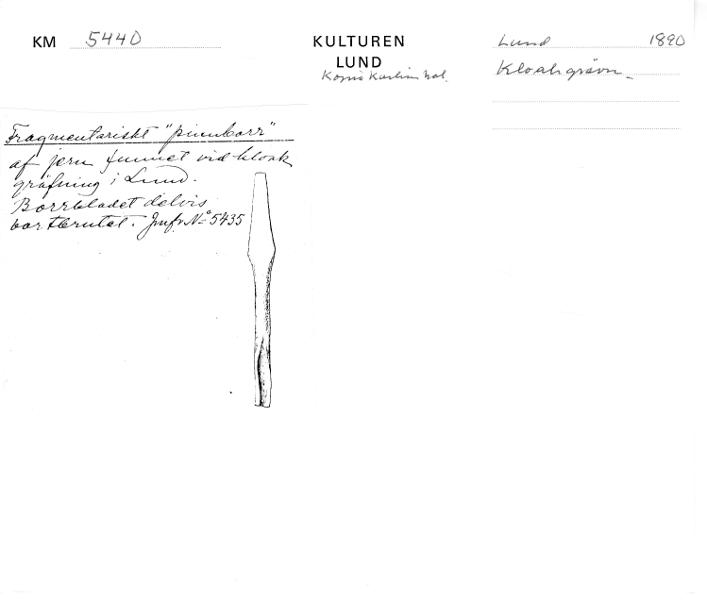 KM 5440
KULTUREN
LUND
Lund 1890
Kloakgrävn.
Fragmentariskt "pinnborr"
af jern funnet vid kloak
gräfning i Lund.
Borrbladet delvis
bortbrutet. Jmfr No 5435